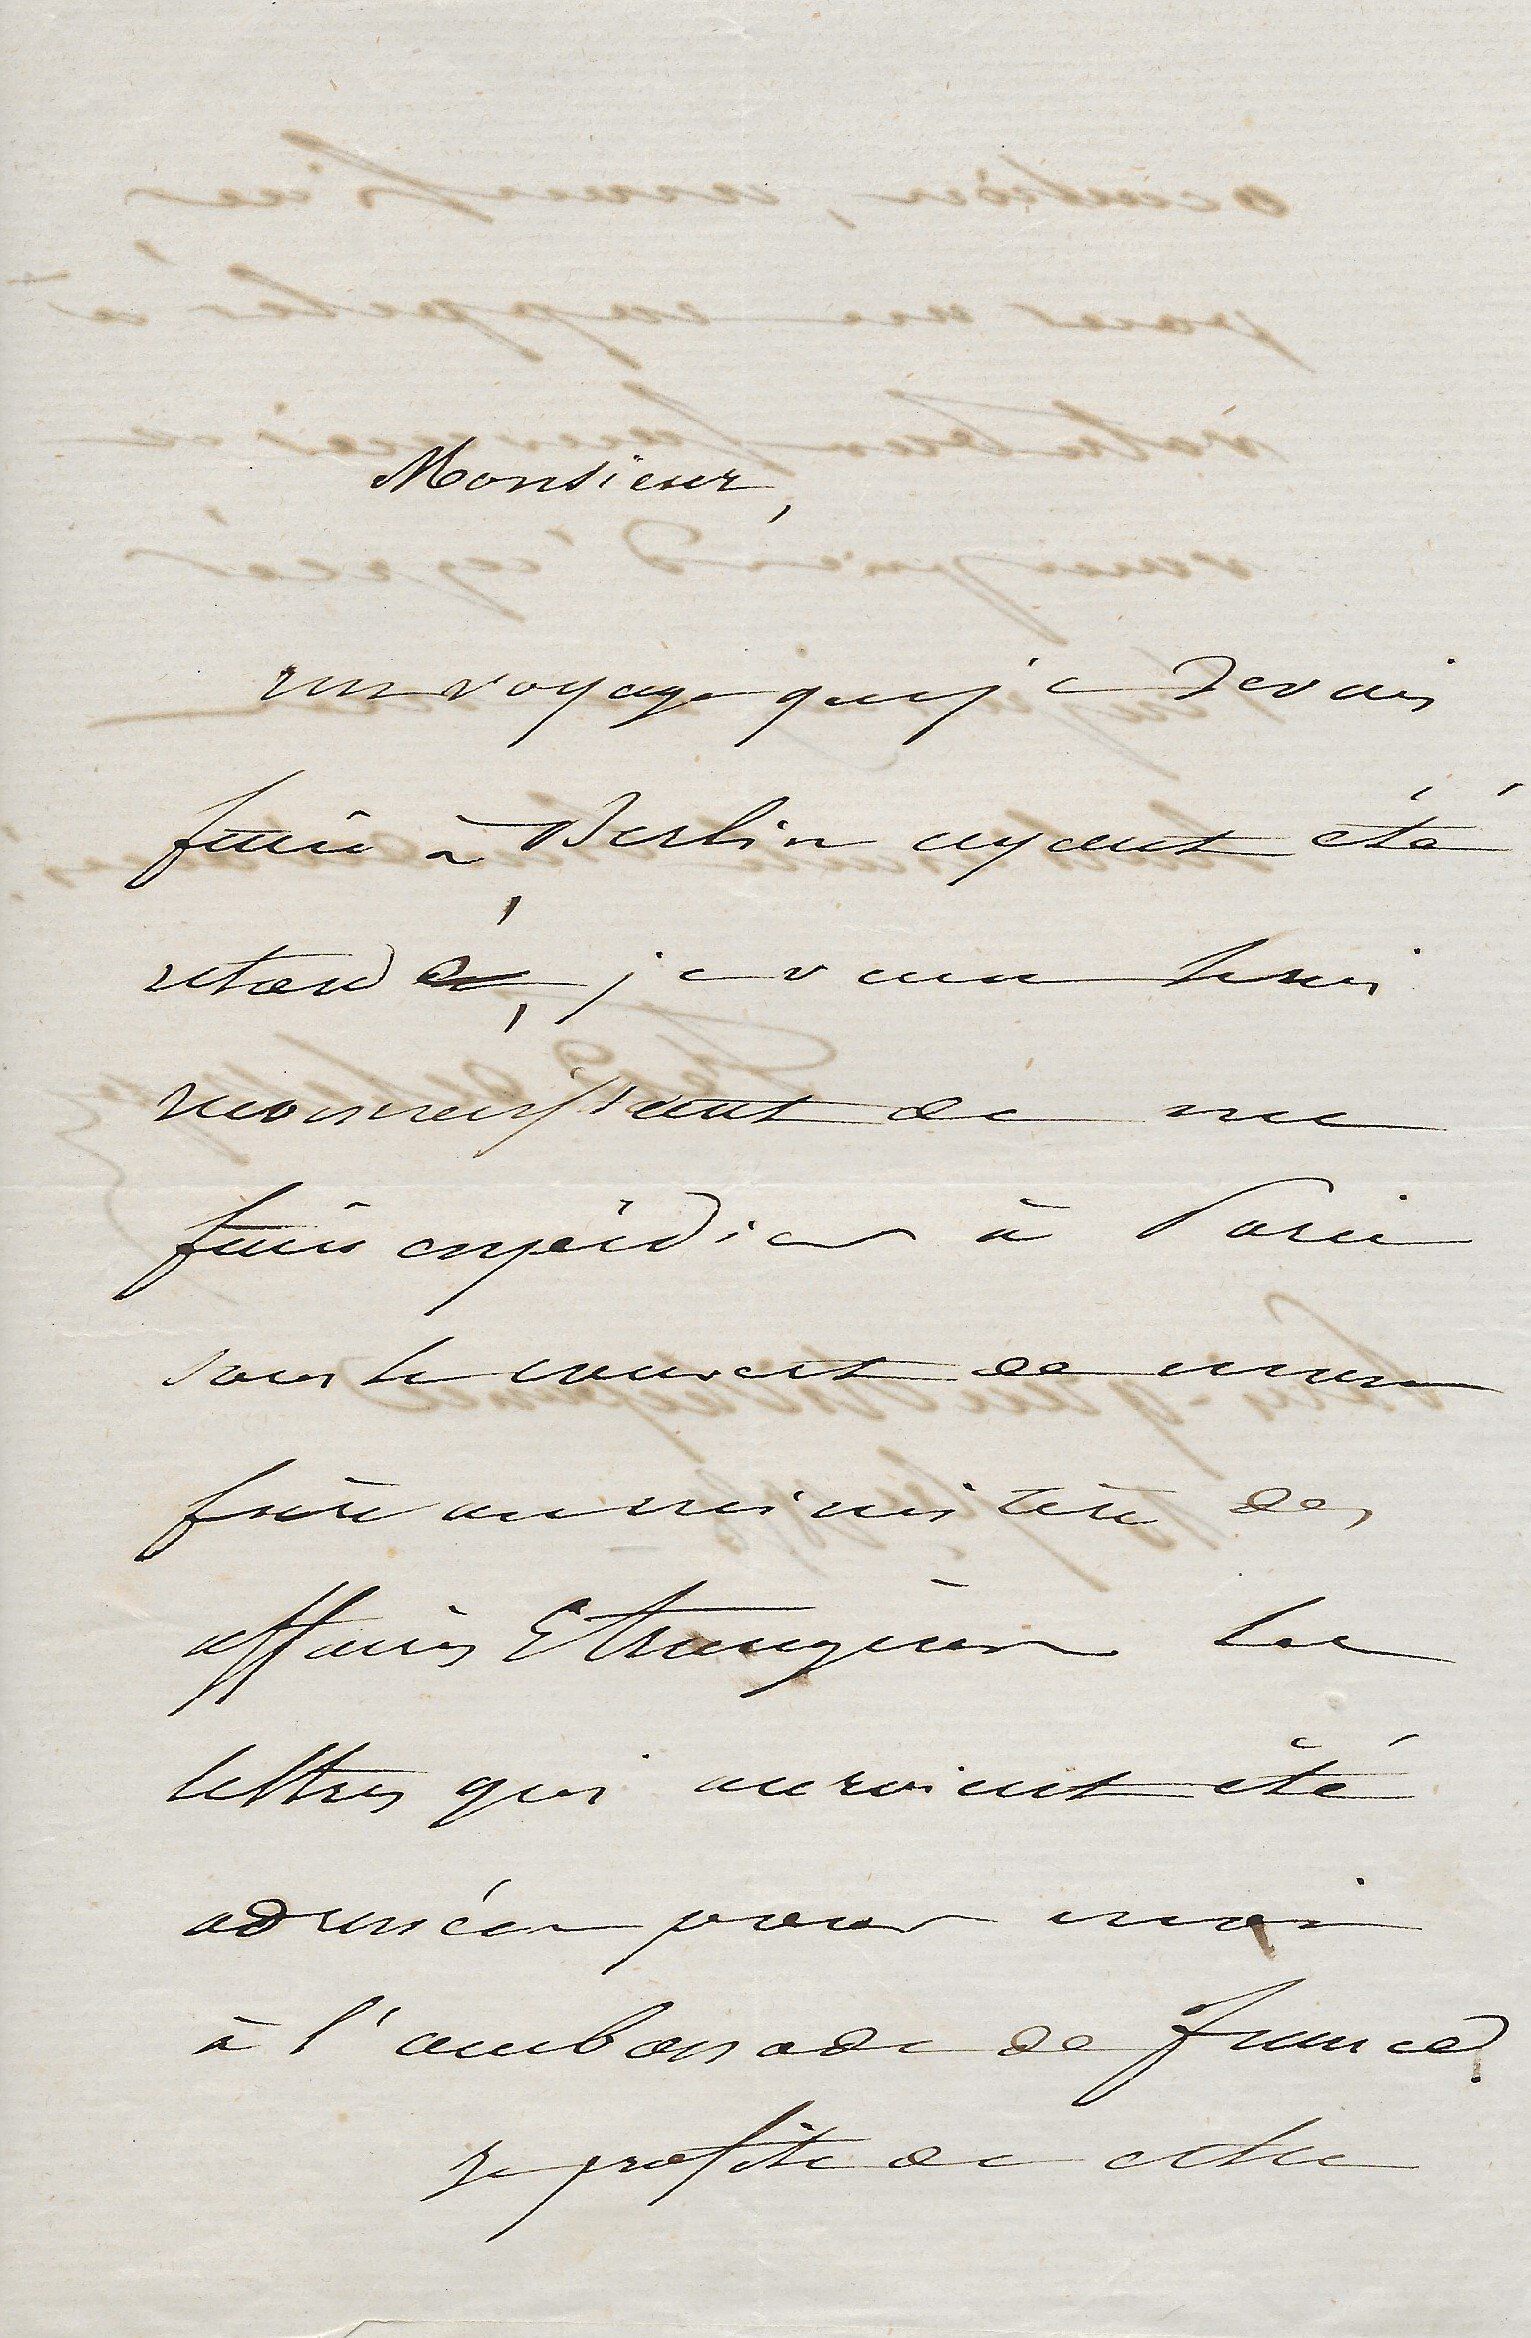 Monsieur,
un voyage que je devais
faire à Berlin ayant été
retardé, je vous serai
reconnaissant de me
faire expédier à Paris
sous le couvert de mon
frère au ministère des
affaires Etrangères les
lettres qui auraient été
adressées pour moi
à l'ambassade de france.
Je profite de cette